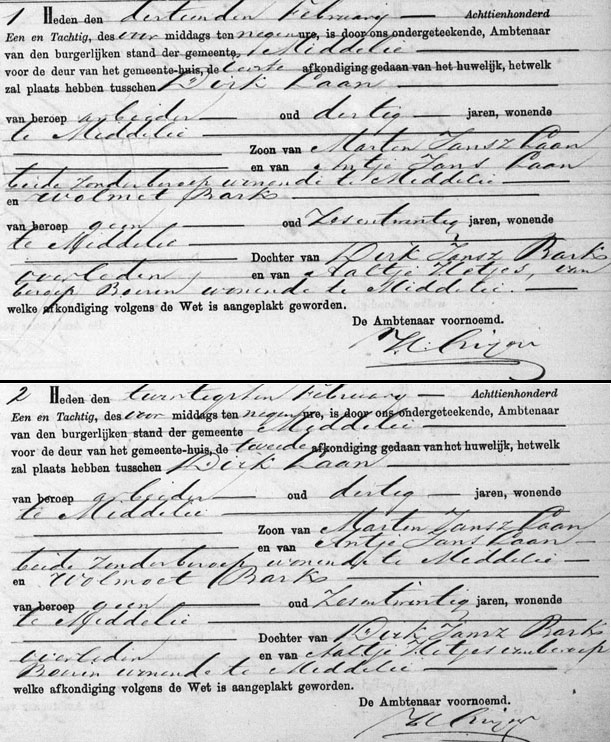 1 Heden den dertienden Februarij Achttienhonderd
Een en Tachtig, des voor middags ten negen ure, is door ons ondergeteekende, Ambtenaar
van den burgerlijken stand der gemeente, Middelie
voor de deur van het gemeente-huis, de eerste afkondiging gedaan van het huwelijk, hetwelk
zal plaats hebben tusschen Dirk Laan
van beroep arbeider oud dertig jaren, wonende
te Middelie
Zoon van Marten Jansz Laan
en van Antje Jans Laan
beide zonder beroep wonende te Middelie
en Wolmet Bark
van beroep geen oud Zesentwintig jaren, wonende
te Middelie
Dochter van Dirk Jansz Bark
overleden en van Aaltje Hetjes, van
beroep Boerin wonende te Middelie.
welke afkondiging volgens de Wet is aangeplakt geworden.
De Ambtenaar voornoemd.
2 Heden den twintigsten Februarij Achttienhonderd
Een en Tachtig, des voor middags ten negen ure, is door ons ondergeteekende, Ambtenaar
van den burgerlijken stand der gemeente Middelie
voor de deur van het gemeente-huis, de tweede afkondiging gedaan van het huwelijk, hetwelk
zal plaats hebben tusschen Dirk Laan
van beroep arbeider oud dertig jaren, wonende
te Middelie
Zoon van Marten Jansz Laan
en van Antje Jans Laan
beide zonder beroep wonende te Middelie
en Wolmoet Bark
van beroep geen oud Zesentwintig jaren, wonende
te Middelie
Dochter van Dirk Jansz Bark
overleden en van Aaltje Hetjes van beroep
Boerin wonende te Middelie
welke afkondiging volgens de Wet is aangeplakt geworden.
De Ambtenaar voornoemd.